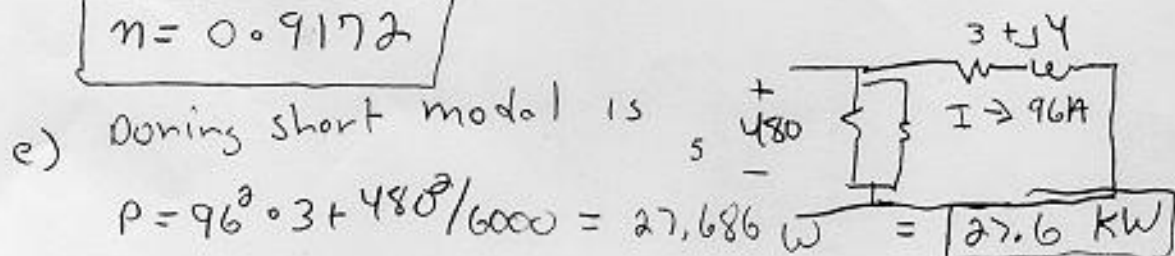 n = 0.9172
3 + j4
e) During short modal is
+
s 480
I → 96A
-
P = 96² · 3 + 480²/6000 = 27,686 W = 27.6 KW